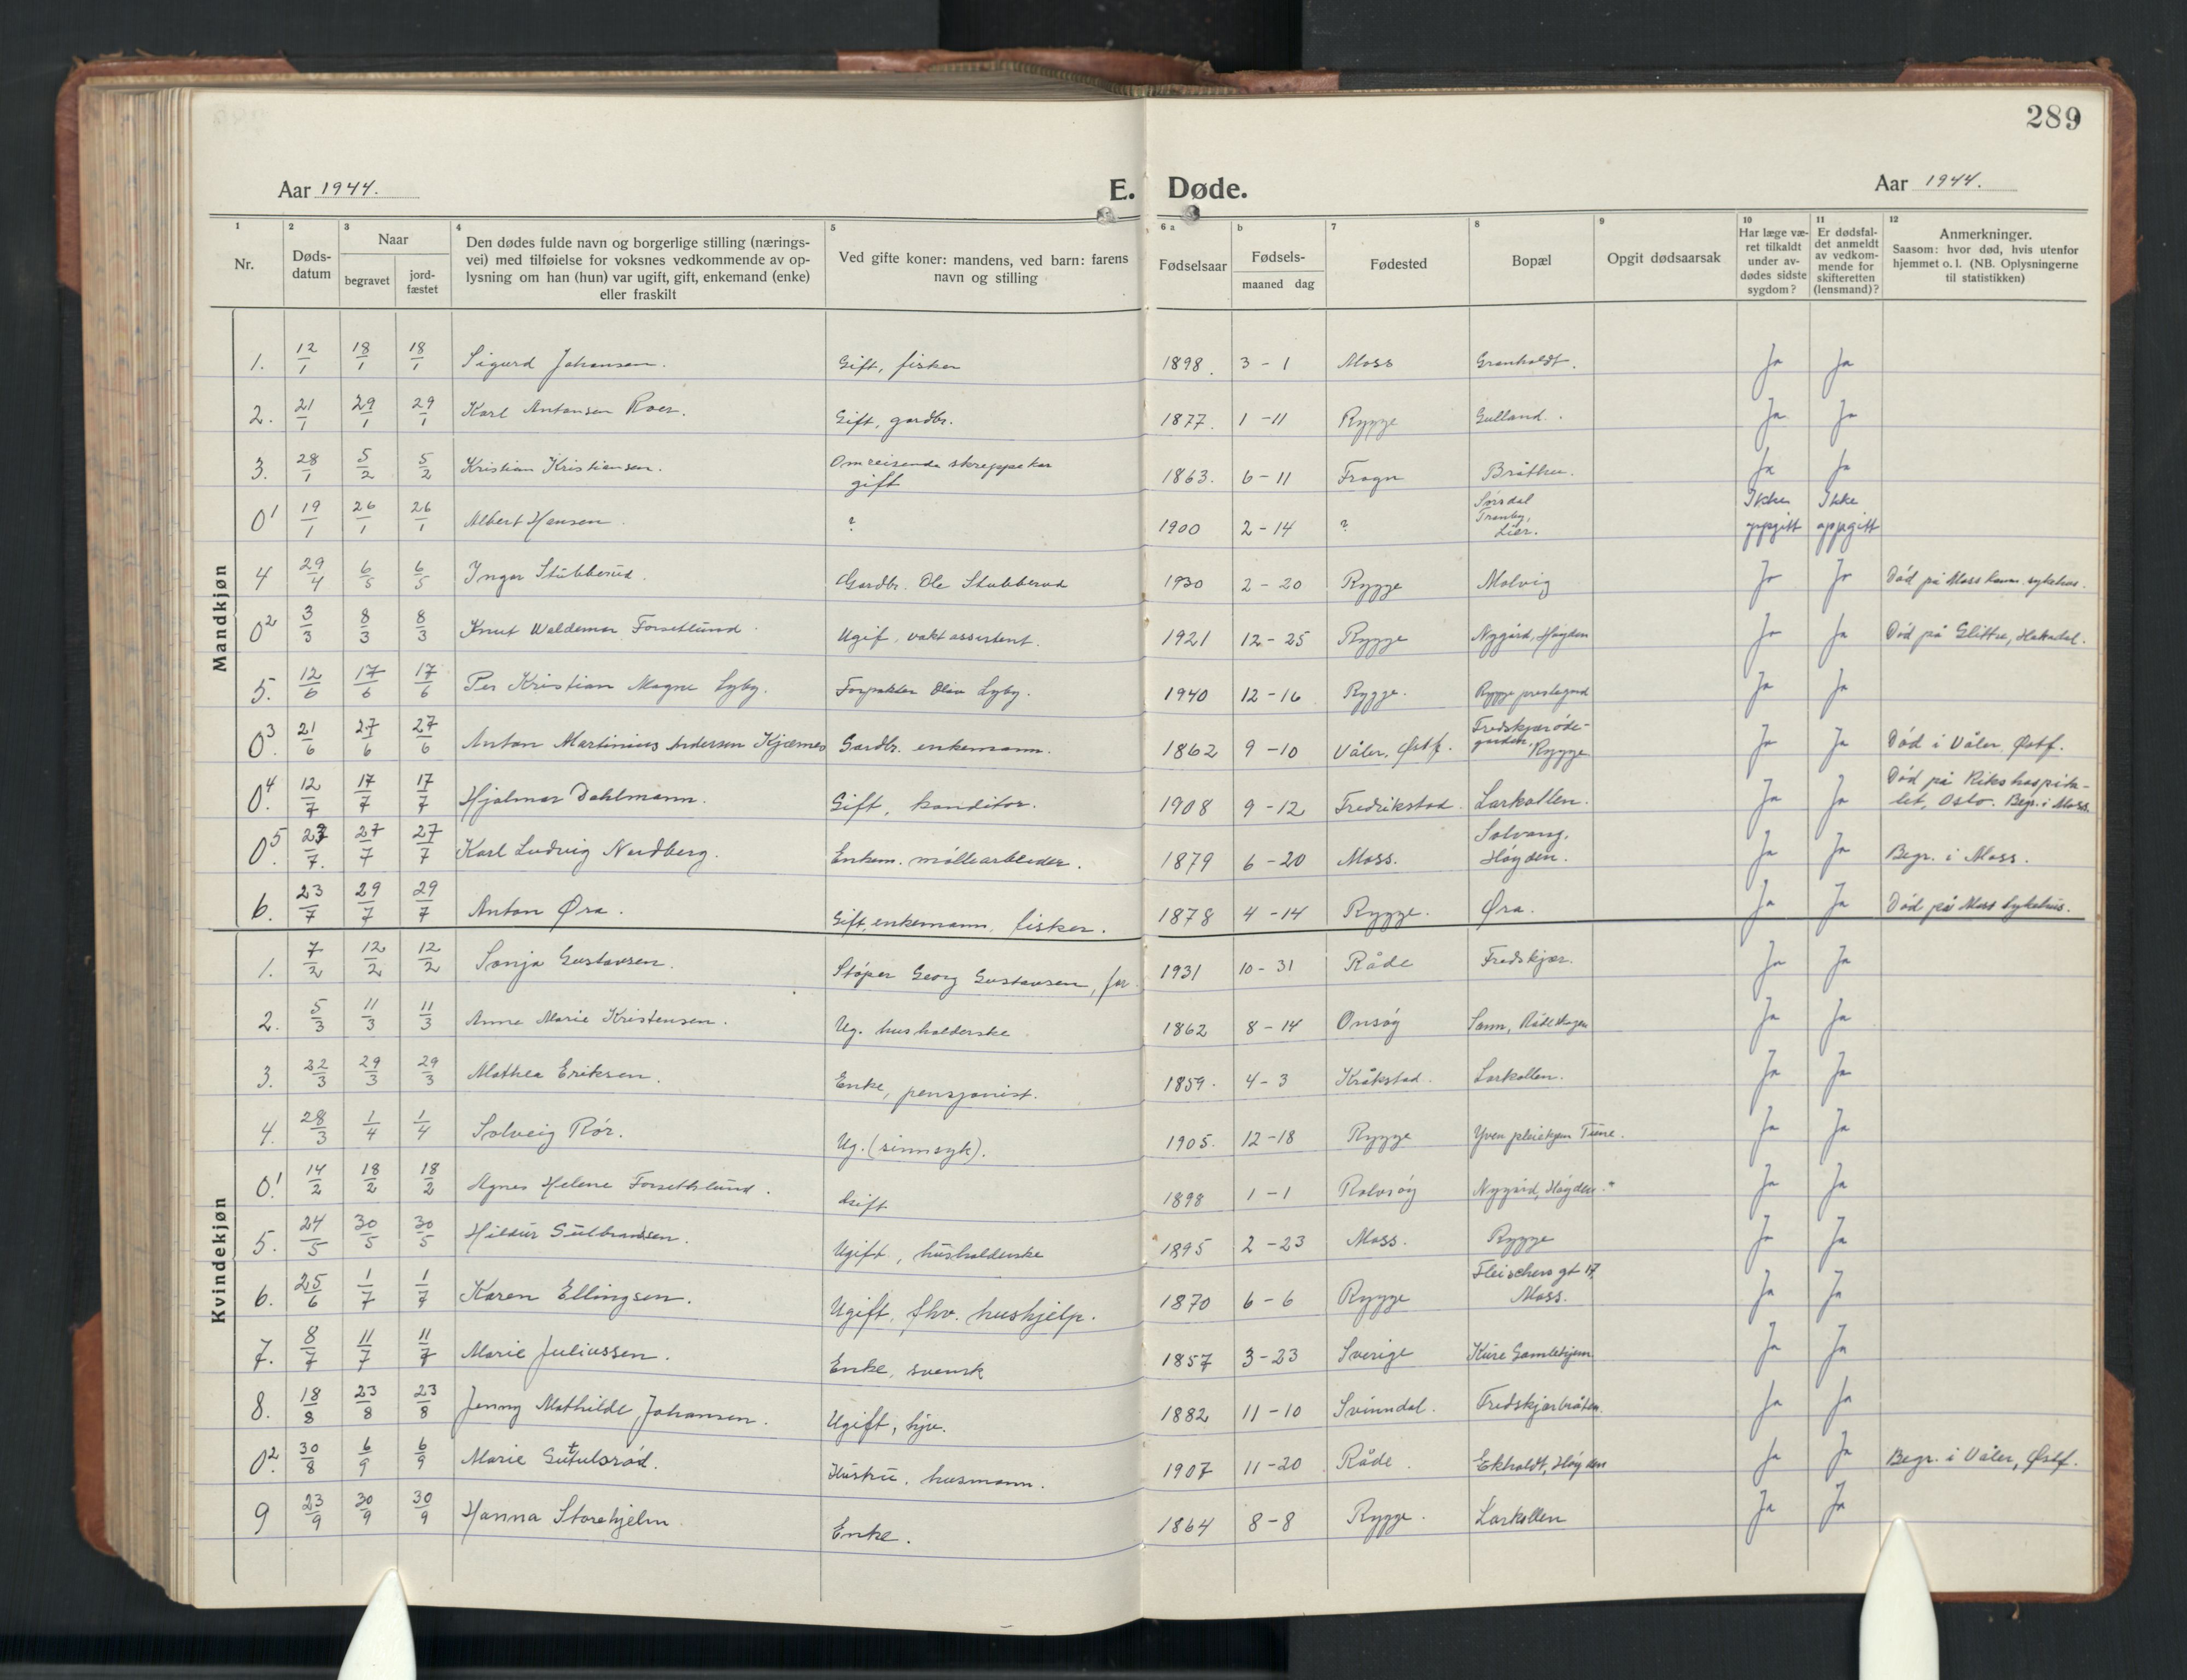 289
Aar 1944.
E. Døde.
Aar 1944.
1 2 3 4 5 6 a b 7 8 9 10 11 12
Nr.
Døds-
datum
Naar
begravet
jord-
fæstet
Den dødes fulde navn og borgerlige stilling (nærings-
vei) med tilføielse for voksnes vedkommende av op-
lysning om han (hun) var ugift, gift, enkemand (enke)
eller fraskilt
Ved gifte koner: mandens, ved barn: farens
navn og stilling
Fødselsaar
Fødsels-
maaned dag
Fødested
Bopæl
Opgit dødsaarsak
Har læge væ-
ret tilkaldt
under av-
dødes sidste
sygdom?
Er dødsfal-
det anmeldt
av vedkom-
mende for
skifteretten
(lensmand)?
Anmerkninger.
Saasom: hvor død, hvis utenfor
hjemmet o. l. (NB. Oplysningerne
til statistikken)
Mandkjøn
1. 12/1 18/1 18/1 Sigurd Johansen. Gift, fisker 1898. 3 - 1 Moss Grønholdt. Ja Ja
2. 21/1 29/1 29/1 Karl Antonsen Roer. Gift, gardbr. 1877. 1 - 11 Rygge Gulland. Ja Ja
3. 28/1 5/2 5/2 Kristian Kristiansen. Omreisende skreppekar
gift 1863. 6 - 11 Frogn Bråthen. Ja Ja
0¹ 19/1 26/1 26/1 Albert Hansen. ? 1900 2 - 14 ? Sørsdal
Tranby,
Lier. Ikke
oppgitt Ikke
oppgitt
4 29/4 6/5 6/5 Ingar Stubberud. Gardbr. Ole Stubberud 1930 2 - 20 Rygge Molvig Ja Ja Død på Moss komm. sykehus.
0² 3/3 8/3 8/3 Knut Waldemar Forsetlund. Ugif, vaktassistent. 1921 12 - 25 Rygge Nygård, Høyden Ja Ja Død på Glittre, Hakadal.
5. 12/6 17/6 17/6 Per Kristian Magne Lyby. Forpakter Olav Lyby. 1940 12 - 16 Rygge. Rygge prestegård Ja Ja
0³. 21/6 27/6 27/6 Anton Martinius Andersen Kjærnes Gardbr. enkemann. 1862 9 - 10 Våler, Østf. Fredskjærøde-
garden, Rygge Ja Ja Død i Våler, Østf.
0⁴. 12/7 17/7 17/7 Hjalmar Dahlmann. Gift, konditor. 1908 9 - 12 Fredrikstad. Larkollen. Ja Ja Død på Rikshospita-
let, Oslo. Begr. i Moss.
0⁵. 23/7. 27/7 27/7 Karl Ludvig Nordberg. Enkem. møllearbeider. 1879 6 - 20 Moss. Solvang,
Høyden. Ja Ja Begr. i Moss.
6. 23/7 29/7 29/7 Anton Øra. Gift, enkemann, fisker. 1878 4 - 14 Rygge. Øra. Ja Ja Død på Moss sykehus.
Kvindekjøn
1. 7/2 12/2 12/2 Sonja Gustavsen. Støper Georg Gustavsen, far. 1931 10 - 31 Råde Fredskjær. Ja Ja
2. 5/3 11/3 11/3 Anne Marie Kristensen. Ug. husholderske 1862 8 - 14 Onsøy Ja Ja
3. 22/3 29/3 29/3 Mathea Eriksen. Enke, pensjonist. 1859. 4 - 3 Kråkstad. Larkollen. Ja Ja
4. 28/3 1/4 1/4 Solveig Rör. Ug. (sinnsyk). 1905. 12 - 18 Rygge Yven pleiehjem Tune. Ja Ja
0¹. 14/2 18/2 18/2 Agnes Helene Forsethlund. Gift 1898 1 - 1 Rolvsøy Nygård, Høyden. Ja Ja
5. 24/5 30/5 30/5 Hildur Gulbrandsen. Ugift, husholderske 1895 2 - 23 Moss. Rygge Ja Ja
6. 25/6 1/7 1/7 Karen Ellingsen. Ugift, fhv. hushjelp. 1870 6 - 6 Rygge Fleischers gt 17,
Moss. Ja Ja
7. 8/7 11/7 11/7 Marie Juliussen. Enke, svensk 1857 3 - 23 Sverige Kure Gamlehjem Ja Ja
8. 18/8 23/8 23/8 Jenny Mathilde Johansen. Ugift, 1882 11 - 10 Svinndal. Fredskjærbråten. Ja Ja
0². 30/8 6/9 6/9 Marie Gutulsrød. Hustru, husmann. 1907 11 - 20 Råde. Ekholdt, Høyden Ja Ja Begr. i Våler, Østf.
9 23/9 30/9 30/9 Hanna Storehjelm Enke. 1864 8 - 8 Rygge. Larkollen Ja Ja